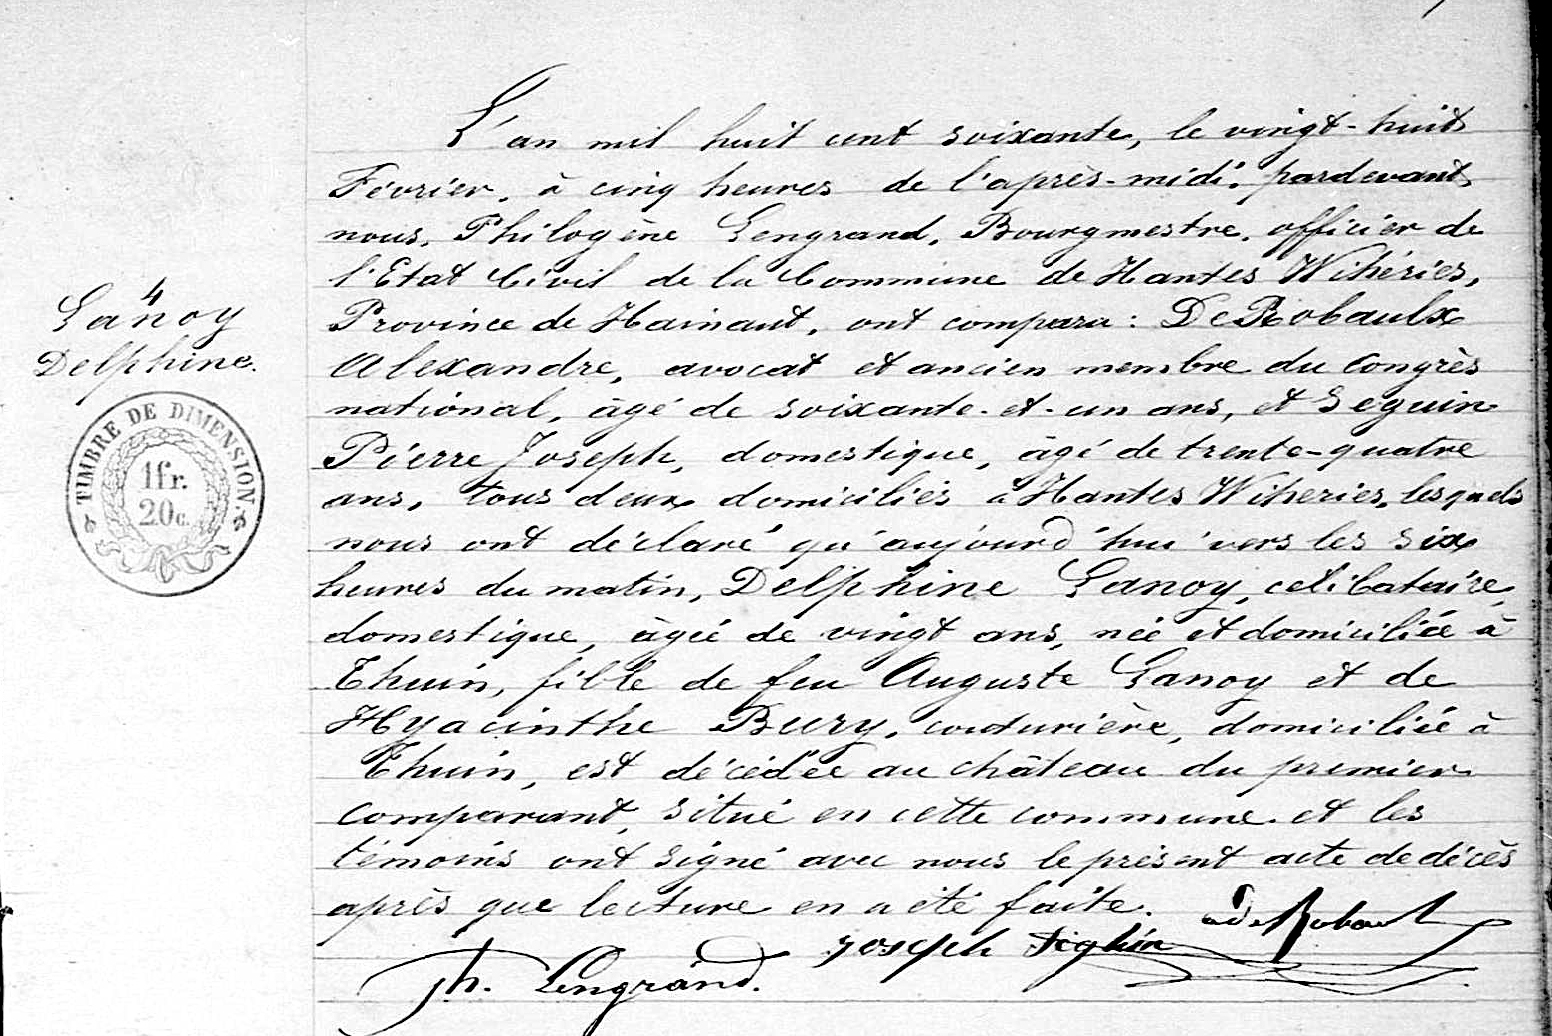 4
Lanoy
Delphine.
TIMBRE DE DIMENSION
1fr.
20c.
L'an mil huit cent soixante, le vingt-huit
Février, à cinq heures de l'après-midi, pardevant
nous, Philogène Lengrand, Bourgmestre, officier de
l'Etat Civil de la Commune de Hantes Wihéries,
Province de Hainaut, ont comparu : De Robaulx
Alexandre, avocat et ancien membre du Congrès
national, âgé de soixante-et-un ans, et Seguin
Pierre Joseph, domestique, âgé de trente-quatre
ans, tous deux domiciliés à Hantes Wiheries, lesquels
nous ont déclaré qu'aujourd'hui vers les six
heures du matin, Delphine Lanoy, célibataire,
domestique, âgée de vingt ans, née et domiciliée à
Thuin, fille de feu Auguste Lanoy et de
Hyacinthe Bury, couturière, domiciliée à
Thuin, est décédée au château du premier
comparant, situé en cette commune. et les
témoins ont signé avec nous le présent acte de décès
après que lecture en a été faite.
ADe Robaulx
Joseph Seghin
Ph. Lengrand.